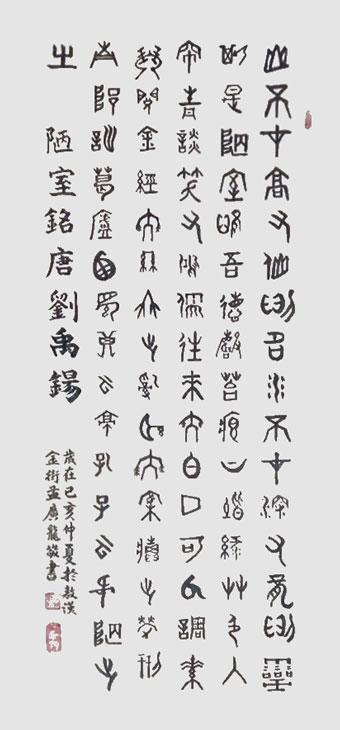 山不在高有仙則名水不在深有龍則靈
斯是陋室惟吾德馨苔痕上階綠草色入
簾青談笑有鴻儒往來無白丁可以調素
琴閱金經無絲竹之亂耳無案牘之勞形
南陽諸葛廬西蜀子云亭孔子云何陋之
有 陋室銘唐劉禹錫
歲在己亥仲夏於漢
金街孟廣龍敬書